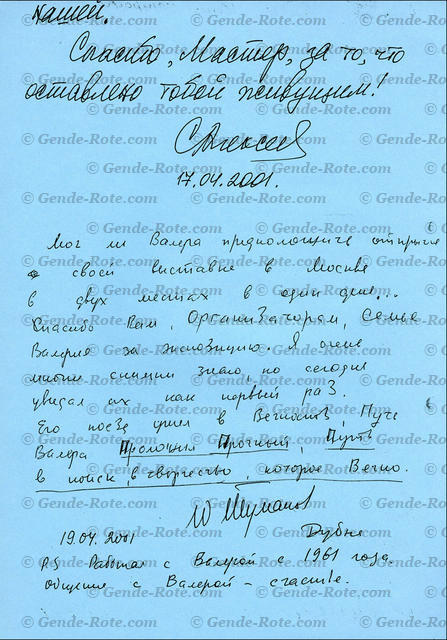 нашей.
Спасибо, Мастер, за то, что
оставлено тобой живущим!
САлексеев
17.04.2001.
Мог ли Валера предположить открытие
о своей выставке в Москве
в двух местах в один день...
Спасибо Вам, Организаторам, Семье
Валерия за экспозицию. Я очень
многие снимки знаю, но сегодня
увидел их как первый раз.
Его поезд ушел в Вечность, Пусть
Валера Проложил Прочный, Путь
в поиск, в творчество, которое Вечно.
19.04.2001 Дубна
P.S Работал с Валерой с 1961 года.
общение с Валерой - счастье.
© Gende-Rote.com